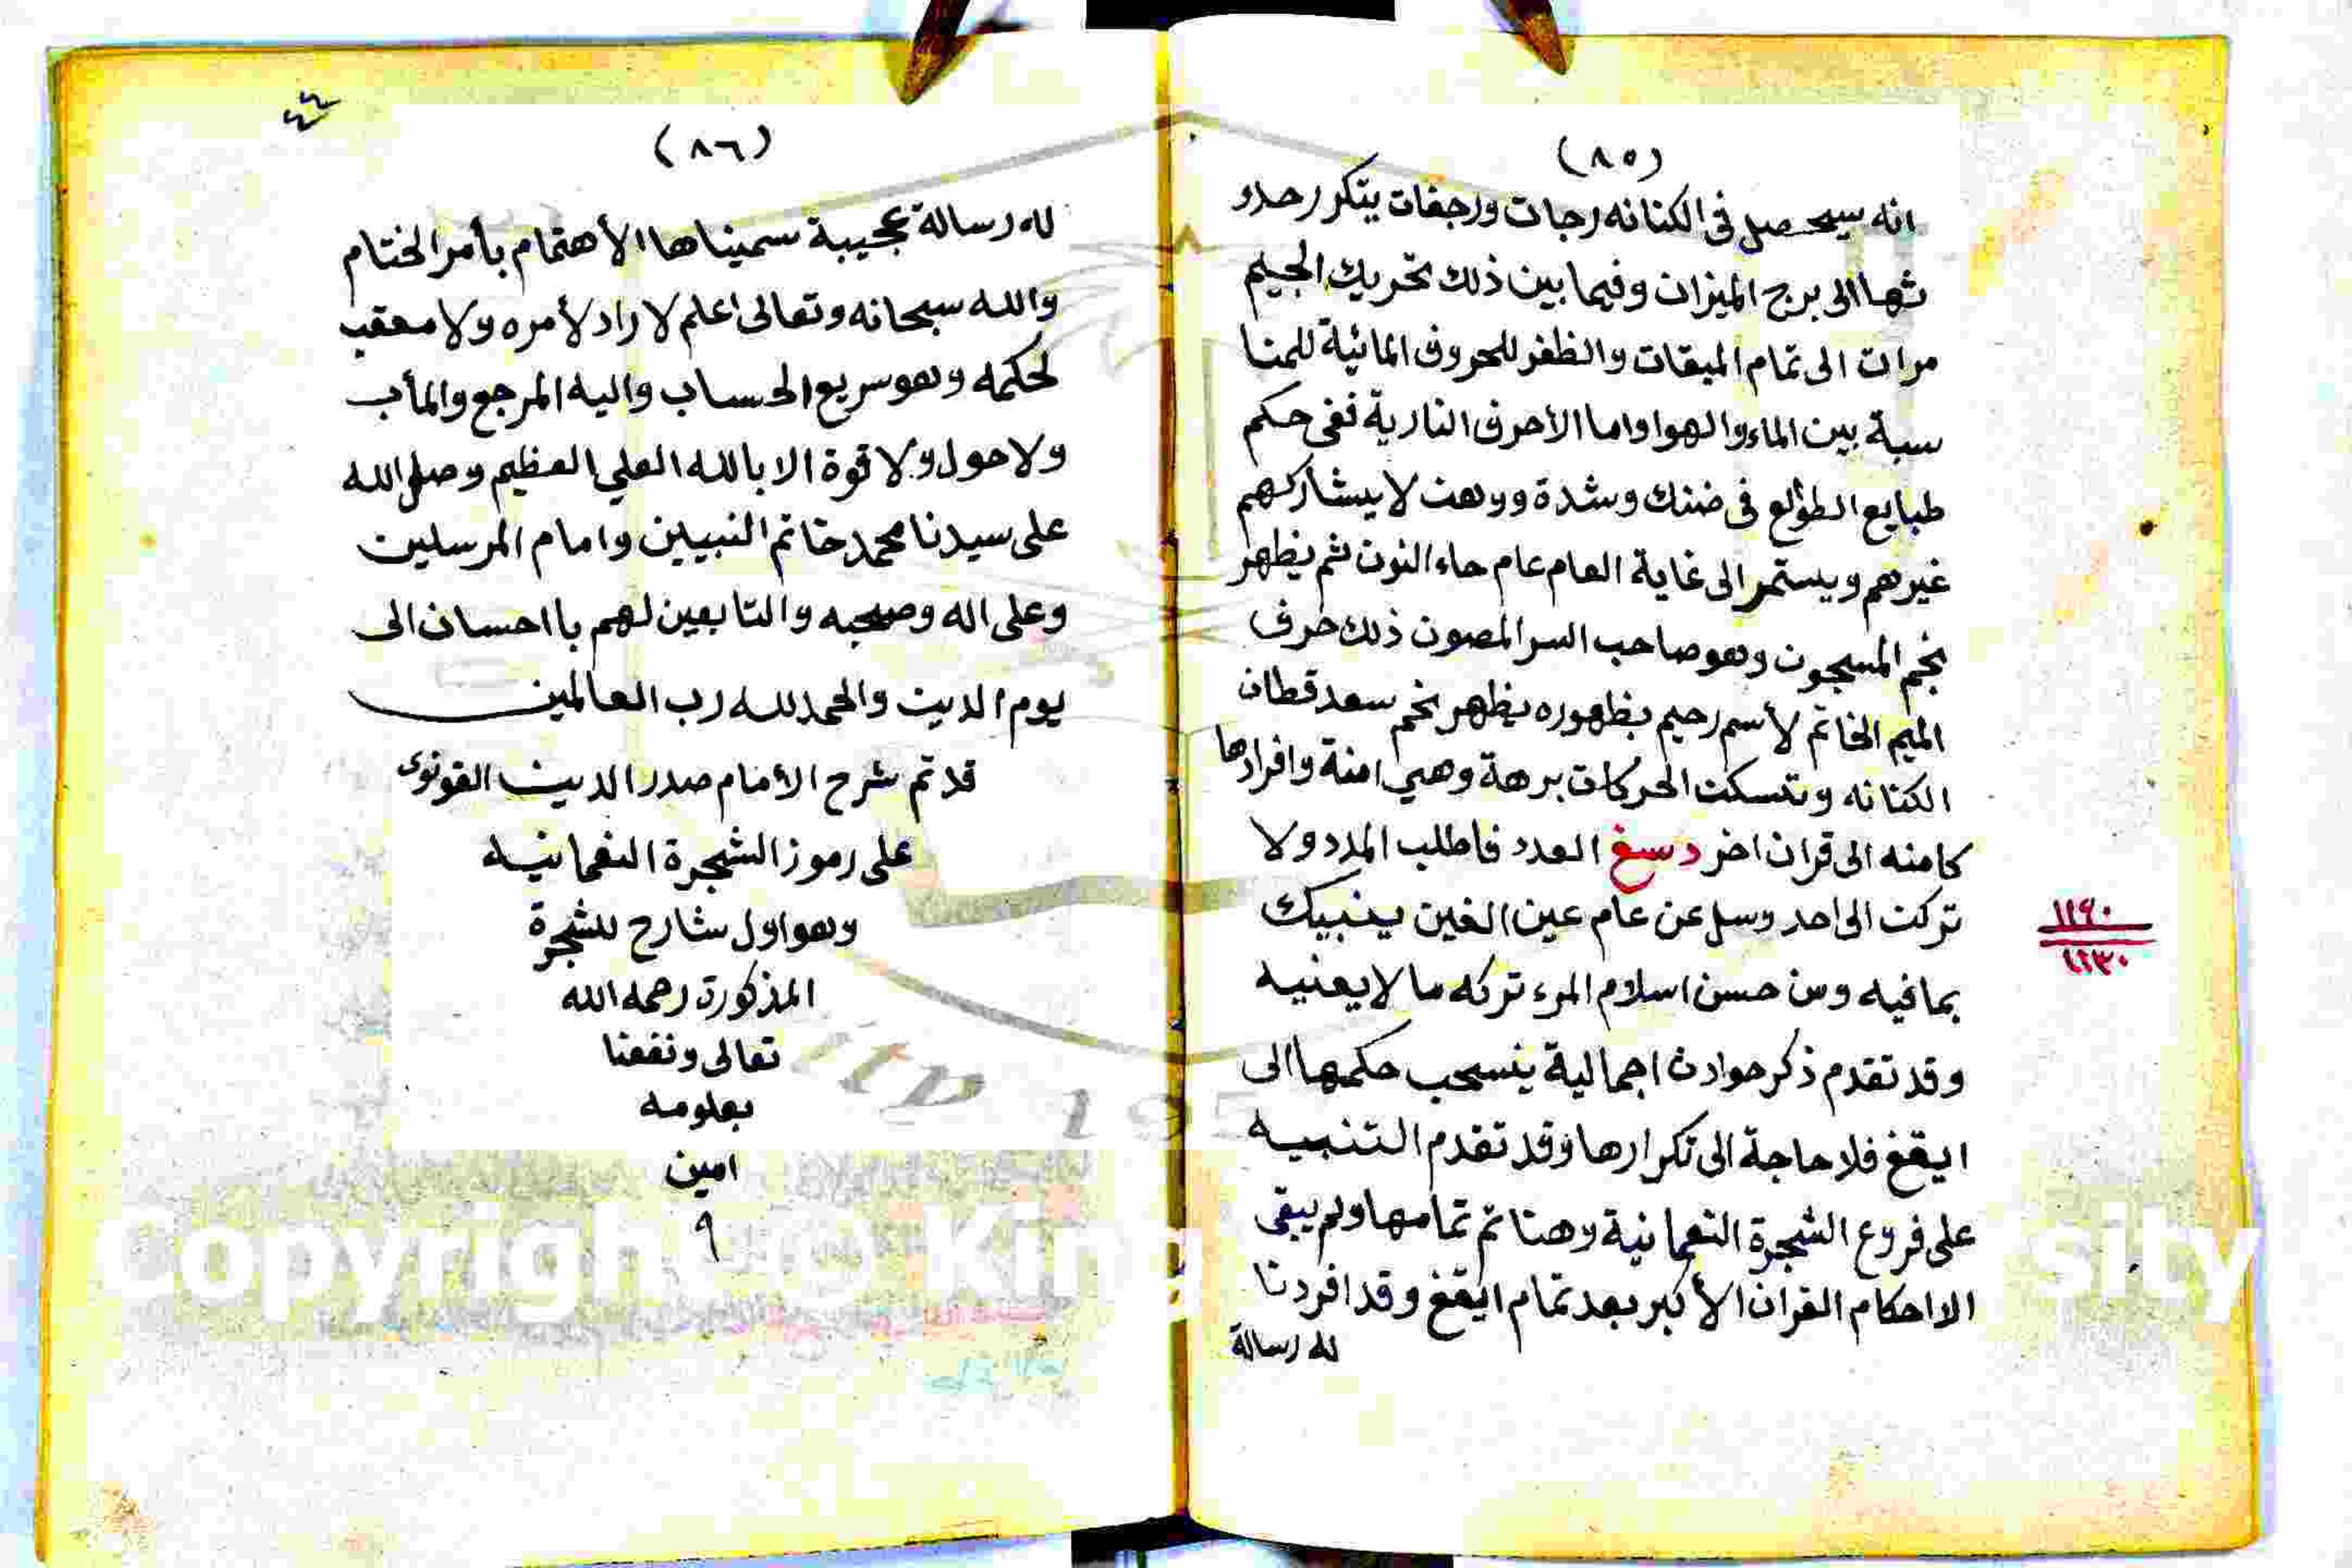 (٨٥)
انه سيحصل فى الكنانه رجات ورجفات يتكرر حدو
ثها الى برج الميزان وفيما بين ذلك تحريك الجيم
مرات الى تمام الميقات والظفر للحروف المائية للمنا
سبة بين الماء والهوا واما الأحرف النارية ففى حكم
طبايع الطوالع فى ضنك وشدة ووهن لا يشاركهم
غيرهم ويستمر الى غاية العام عام حاء النون ثم يظهر
نجم المسجون وهو صاحب السر المصون ذلك حرف
الميم الخاتم لأسم رحيم بظهوره يظهر نجم سعد قطان
الكنانه وتسكن الحركات برهة وهي امنة وافرادها
كامنه الى قران اخر دسغ العدد فاطلب المدد ولا
تركن الى احد وسل عن عام عين الغين ينبيك
بما فيه ومن حسن اسلام المرء تركه ما لا يعنيه
وقد تقدم ذكر حوادث اجمالية ينسحب حكمها الى
ايقغ فلا حاجة الى تكرارها وقد تقدم التنبيه
على فروع الشجرة النعمانية وهنا تم تمامها ولم يبقى
الا احكام القران الأكبر بعد تمام ايقغ وقد افردنا
له رسالة
١١٤٠
١١٣٠
(٨٦)
٤٤
له رسالة عجيبة سميناها الأهتمام بأمر الختام
والله سبحانه وتعالى اعلم لا راد لأمره ولا معقب
لحكمه وهو سريع الحساب واليه المرجع والمأب
ولا حول ولا قوة الا بالله العلي العظيم وصلى الله
على سيدنا محمد خاتم النبيين وامام المرسلين
وعلى اله وصحبه والتابعين لهم با احسان الى
يوم الدين والحمد لله رب العالمين
قد تم شرح الأمام صدر الدين القونوى
على رموز الشجرة النعمانيه
وهو اول شارح للشجرة
المذكورة رحمه الله
تعالى ونفعنا
بعلومه
امين
٩
Copyright © King sity